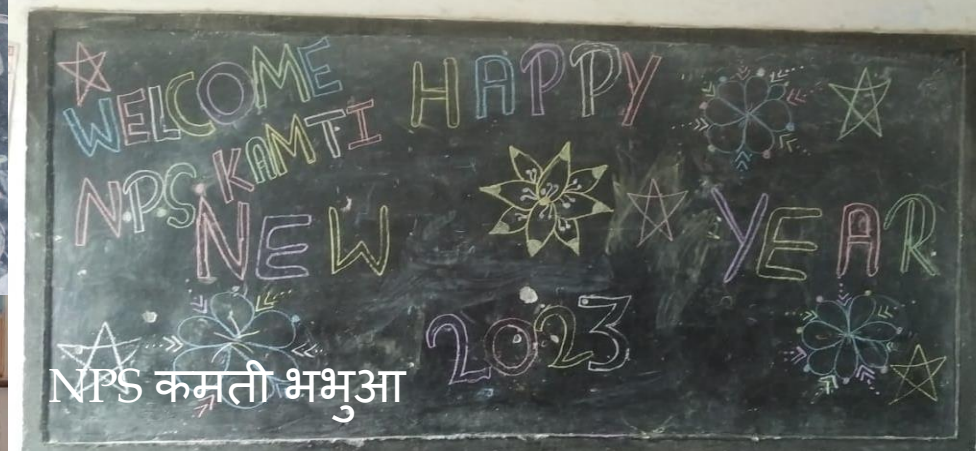 WELCOME
NPS KAMTI
HAPPY
NEW YEAR
2023
NPS कमती भभुआ